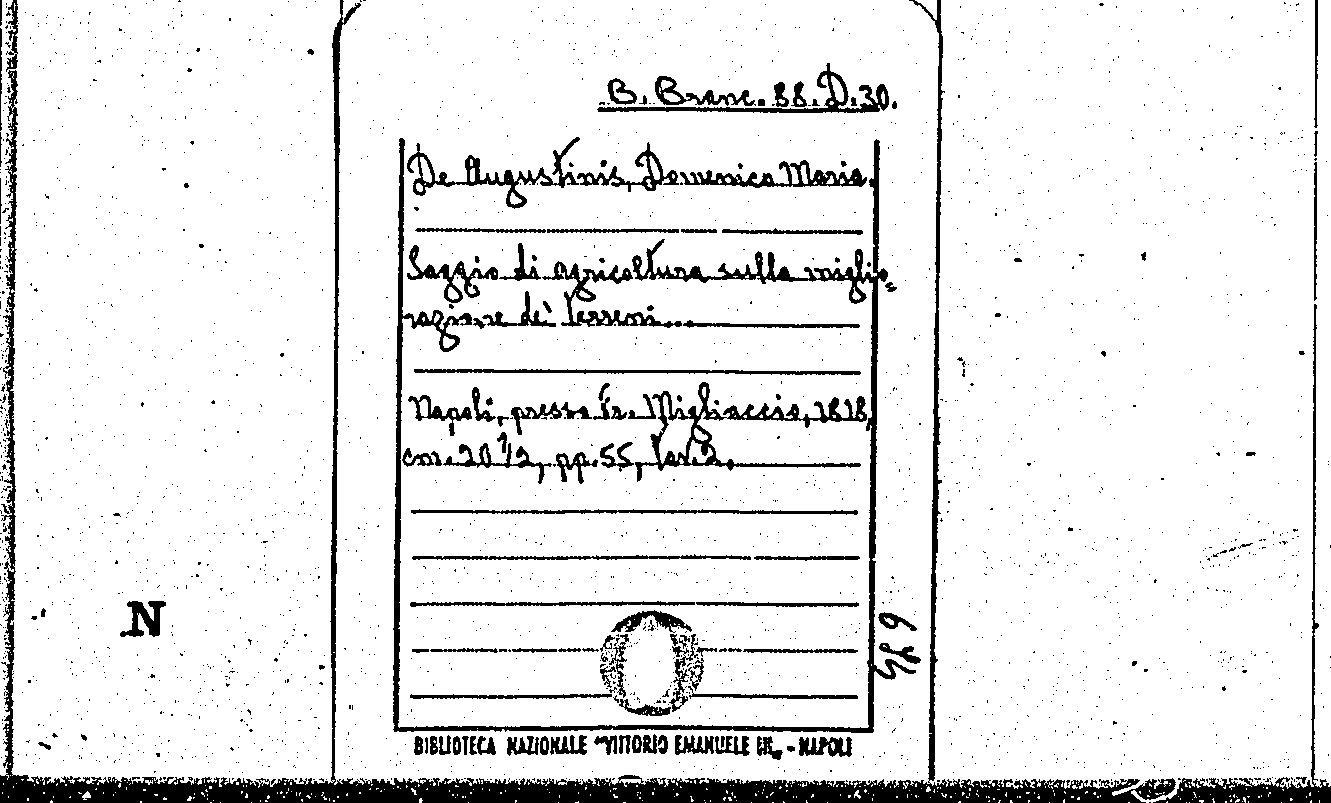 B. Branc. 88. D. 30.
De Augustinis, Domenico Maria.
Saggio di agricoltura sulla miglio„
razione de' terreni...
Napoli, presso Fr. Migliaccio, 1818,
cm. 20 1/2, pp. 55, tav. 2.
N
BIBLIOTECA NAZIONALE “VITTORIO EMANUELE III„ - NAPOLI